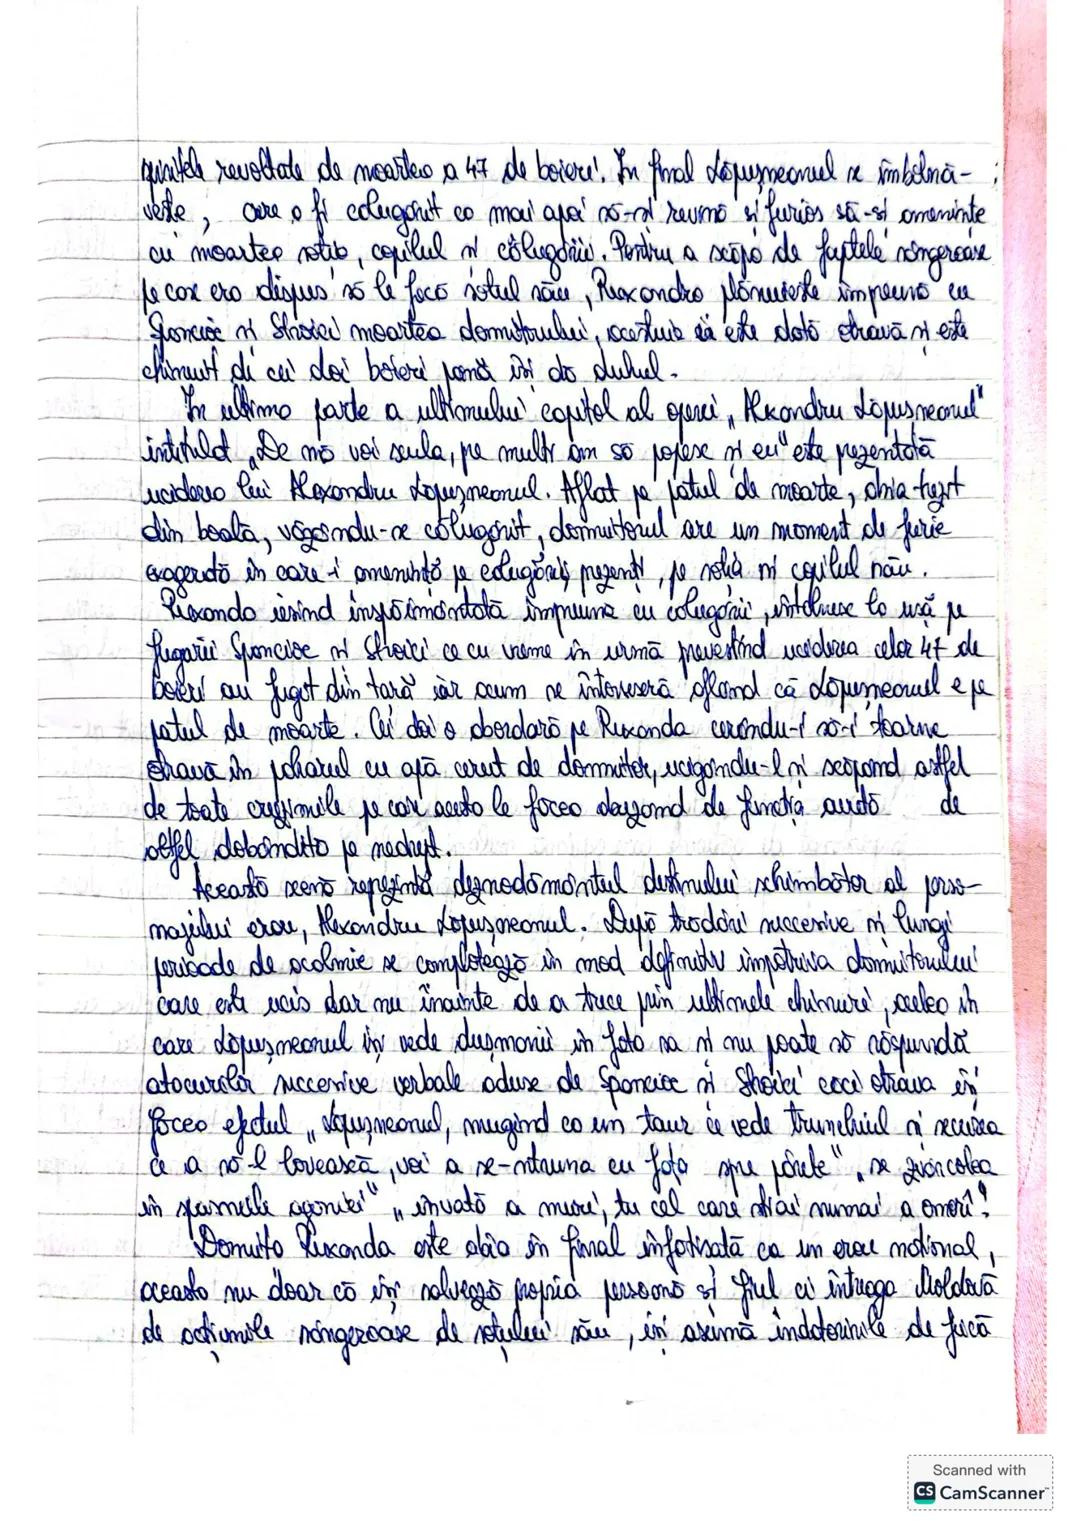 revoltate de moartea a 47 de boieri. In final Lăpușneanul se îmbolnă-
vește, care o fi călugărit ca mai apoi să-și revină și furios să-și amenințe
cu moartea soția, copilul și călugării. Pentru a scăpa de faptele sângeroase
pe care era dispus să le facă soțul său, Ruxandra plănuiește împreună cu
Spancioc și Stroici moartea domnitorului, acestuia îi este dată otravă și este
chinuit de cei doi boieri până își dă duhul.
In ultima parte a ultimului capitol al operei „Alexandru Lăpușneanul"
intitulat „De mă voi scula, pe mulți am să popesc și eu" este pezentată
uciderea lui Alexandru Lăpușneanul. Aflat pe patul de moarte, abia trezit
din boală, văzându-se călugărit, domnitorul are un moment de furie
exagerată în care-i amenință pe călugării pezenți, pe soția și copilul său.
Ruxanda ieșind înspăimântată împreuna cu călugării, întalnesc la ușă pe
fugarii Spancioc și Stroici ce cu vreme în urmă prevestind uciderea celor 47 de
boieri au fugit din țară iăr acum se întorseseră aflând că Lăpușneanul e pe
patul de moarte. Cei doi o abordară pe Ruxanda cerându-i să-i toarne
otravă în paharul cu apă cerut de domnitor, ucigându-l și scăpând astfel
de toate cruzimile pe care acesta le făcea dăzând de funcția aceasta de
altfel dobândită pe nedrept.
Această scenă repezintă deznodământul destinului schimbător al perso-
najului erou, Alexandru Lăpușneanul. După trădări succesive și lungi
perioade de acalmie se complotează în mod definitiv împotriva domnitorului
care este ucis dar nu înainte de a trece prin ultimele chinuri, acelea în
care Lăpușneanul își vede dușmanii în fața sa și nu poate să răspundă
atacurilor succesive verbale aduse de Spancioc și Stroici căci otrava își
făcea efectul „Lăpușneanul, mugind ca un taur ce vede trunchiul și securea
ce a să-l lovească, voi a se-nturna cu fața spre părete", „se zvârcolea
în spasmele agoniei" „învață a muri, tu cel care știai numai a omorî"
Domnița Ruxanda este abia în final înfățisată ca un erou național,
aceasta nu doar că își salvează propria persoană și fiul ci întreaga Moldovă
de acțiunile sângeroase de soțului său, își asumă îndatoririle de fiică
Scanned with
CS CamScanner